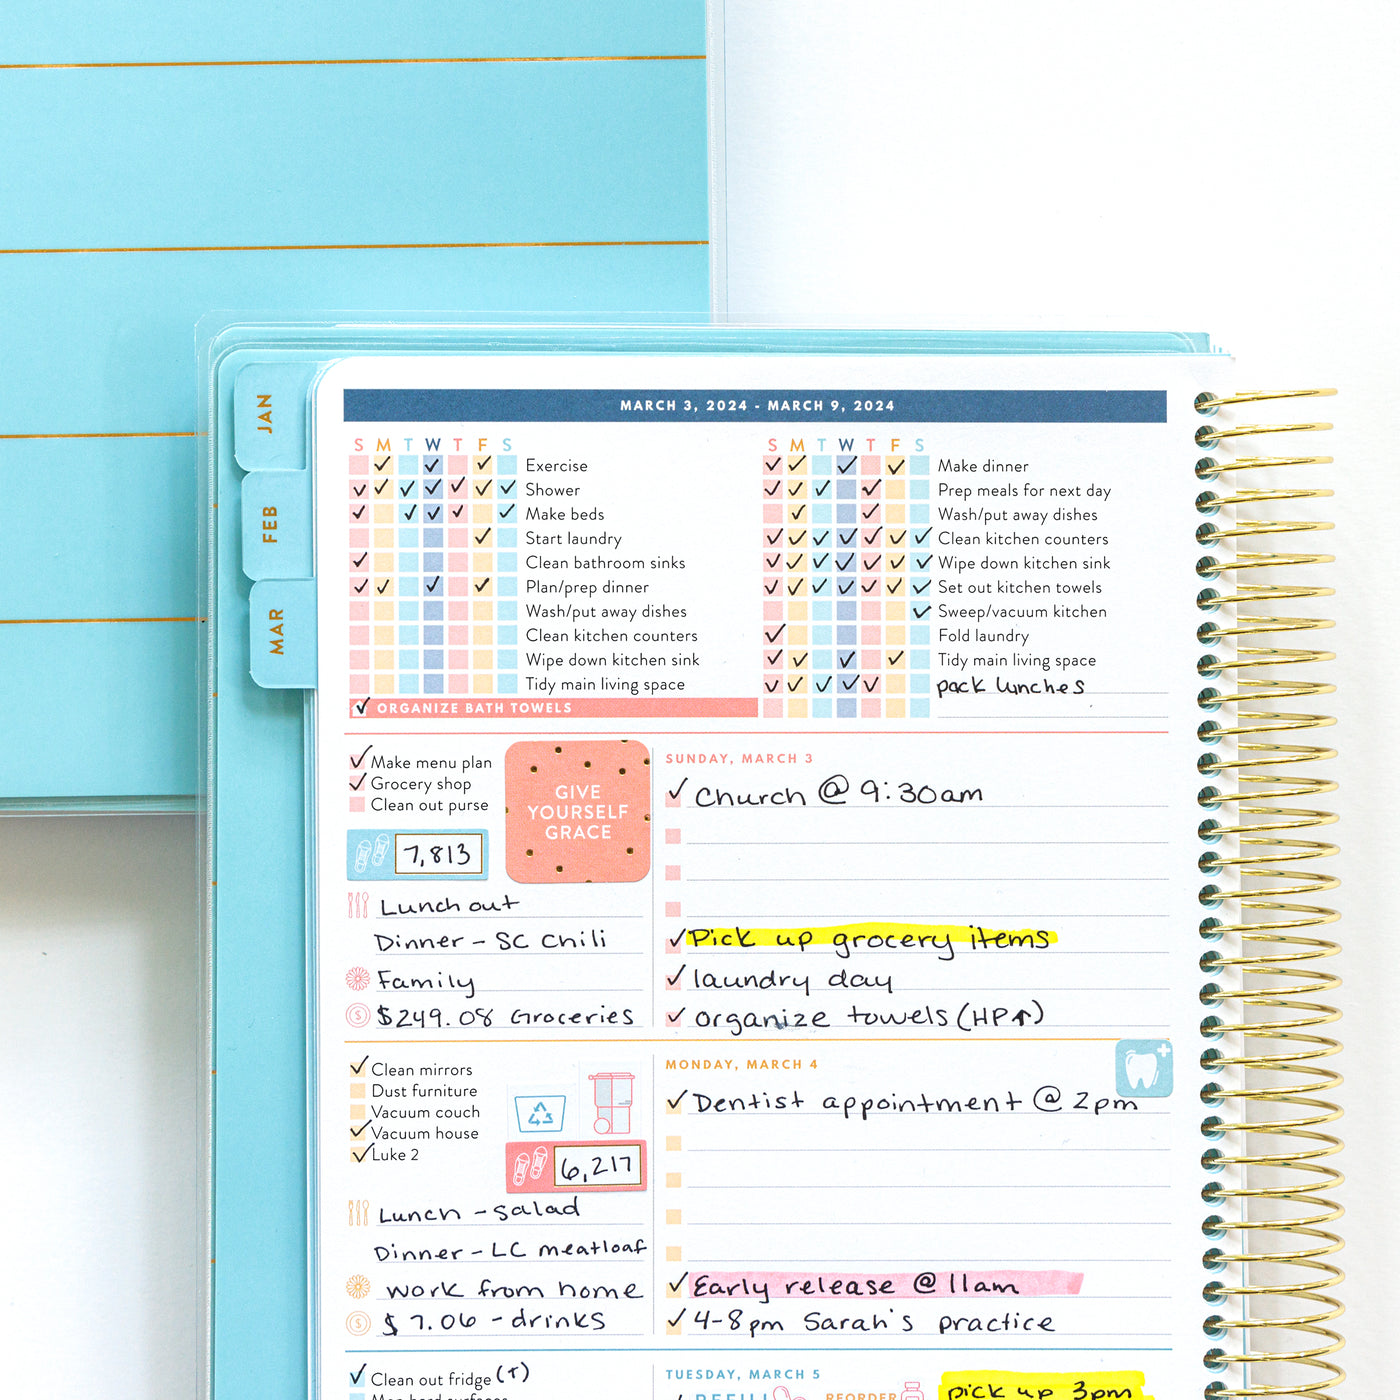 JAN
FEB
MAR
MARCH 3, 2024 - MARCH 9, 2024
S M T W T F S
Exercise
Shower
Make beds
Start laundry
Clean bathroom sinks
Plan/prep dinner
Wash/put away dishes
Clean kitchen counters
Wipe down kitchen sink
Tidy main living space
ORGANIZE BATH TOWELS
S M T W T F S
Make dinner
Prep meals for next day
Wash/put away dishes
Clean kitchen counters
Wipe down kitchen sink
Set out kitchen towels
Sweep/vacuum kitchen
Fold laundry
Tidy main living space
pack lunches
Make menu plan
Grocery shop
Clean out purse
GIVE
YOURSELF
GRACE
7,813
Lunch out
Dinner - SC Chili
Family
$249.08 Groceries
SUNDAY, MARCH 3
Church @ 9:30am
Pick up grocery items
laundry day
organize towels (HP↑)
Clean mirrors
Dust furniture
Vacuum couch
Vacuum house
Luke 2
6,217
Lunch - salad
Dinner - LC meatloaf
work from home
$7.06 - drinks
MONDAY, MARCH 4
Dentist appointment @ 2pm
Early release @ 11am
4-8pm Sarah's practice
Clean out fridge (↑)
TUESDAY, MARCH 5
REFILL
REORDER
pick up 3pm